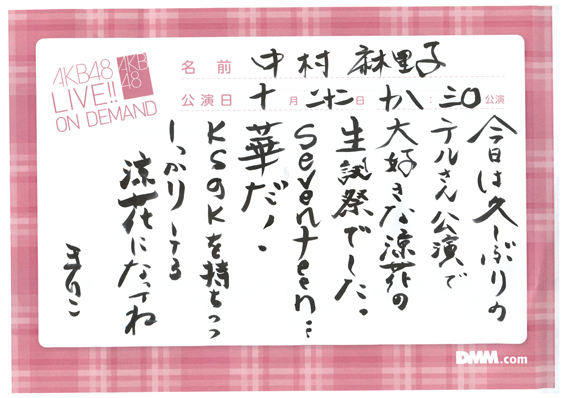 AKB48
LIVE!!
ON DEMAND
AKB
48
名前 中村 麻里子
公演日 十月二十二日 十八:三〇公演
今日は久しぶりの
テルさん公演で
大好きな涼花の
生誕祭でした。
Seventeen…
華だ!.
KSgKを持ちつつ
しっかりしてる
涼花になってね
まりこ
DMM.com